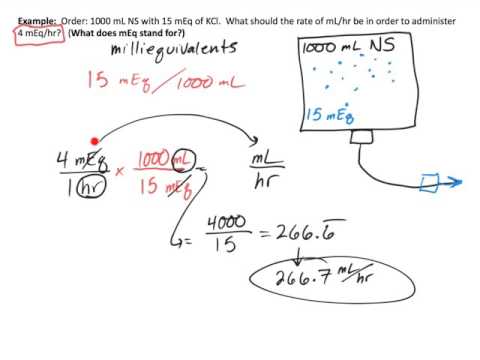 Example: Order: 1000 mL NS with 15 mEq of KCl. What should the rate of mL/hr be in order to administer
4 mEq/hr? (What does mEq stand for?)
milliequivalents
15 mEq/1000 mL
1000 mL NS
15 mEq
4 mEq / 1 hr × 1000 mL / 15 mEq = mL / hr
= 4000 / 15 = 266.6̅
266.7 mL/hr